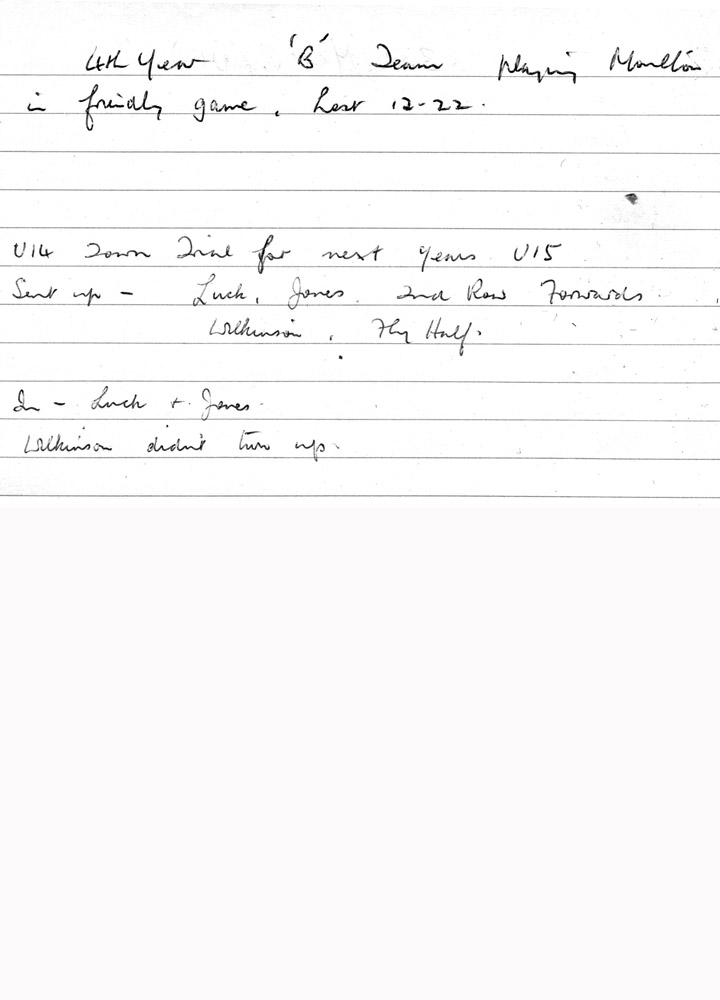 4th Year 'B' Team playing Moulton
in friendly game, Lost 12-22.
U14 Town Trial for next years U15
Sent up - Luck, Jones. 2nd Row Forwards
Wilkinson, Fly Half.
In - Luck + Jones.
Wilkinson didn't turn up.